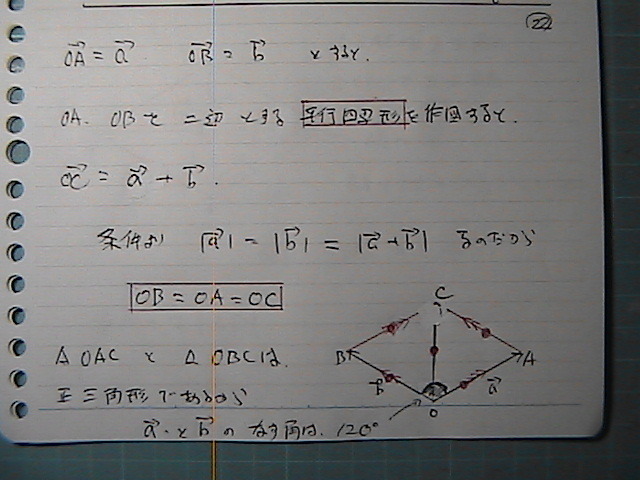 22
→OA = →a →OB = →b とすると、
OA、OBを二辺とする平行四辺形を作図すると、
→OC = →a + →b.
条件より |→a| = |→b| = |→a + →b| なのだから
OB = OA = OC
△OACと△OBCは、
正三角形であるから
→a と →b のなす角は、120°
C
B
A
→b
→a
O